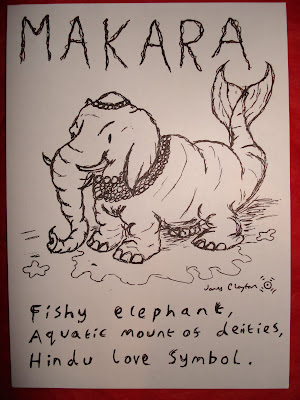 MAKARA
James Clayton
Fishy elephant,
Aquatic mount of deities,
Hindu love symbol.